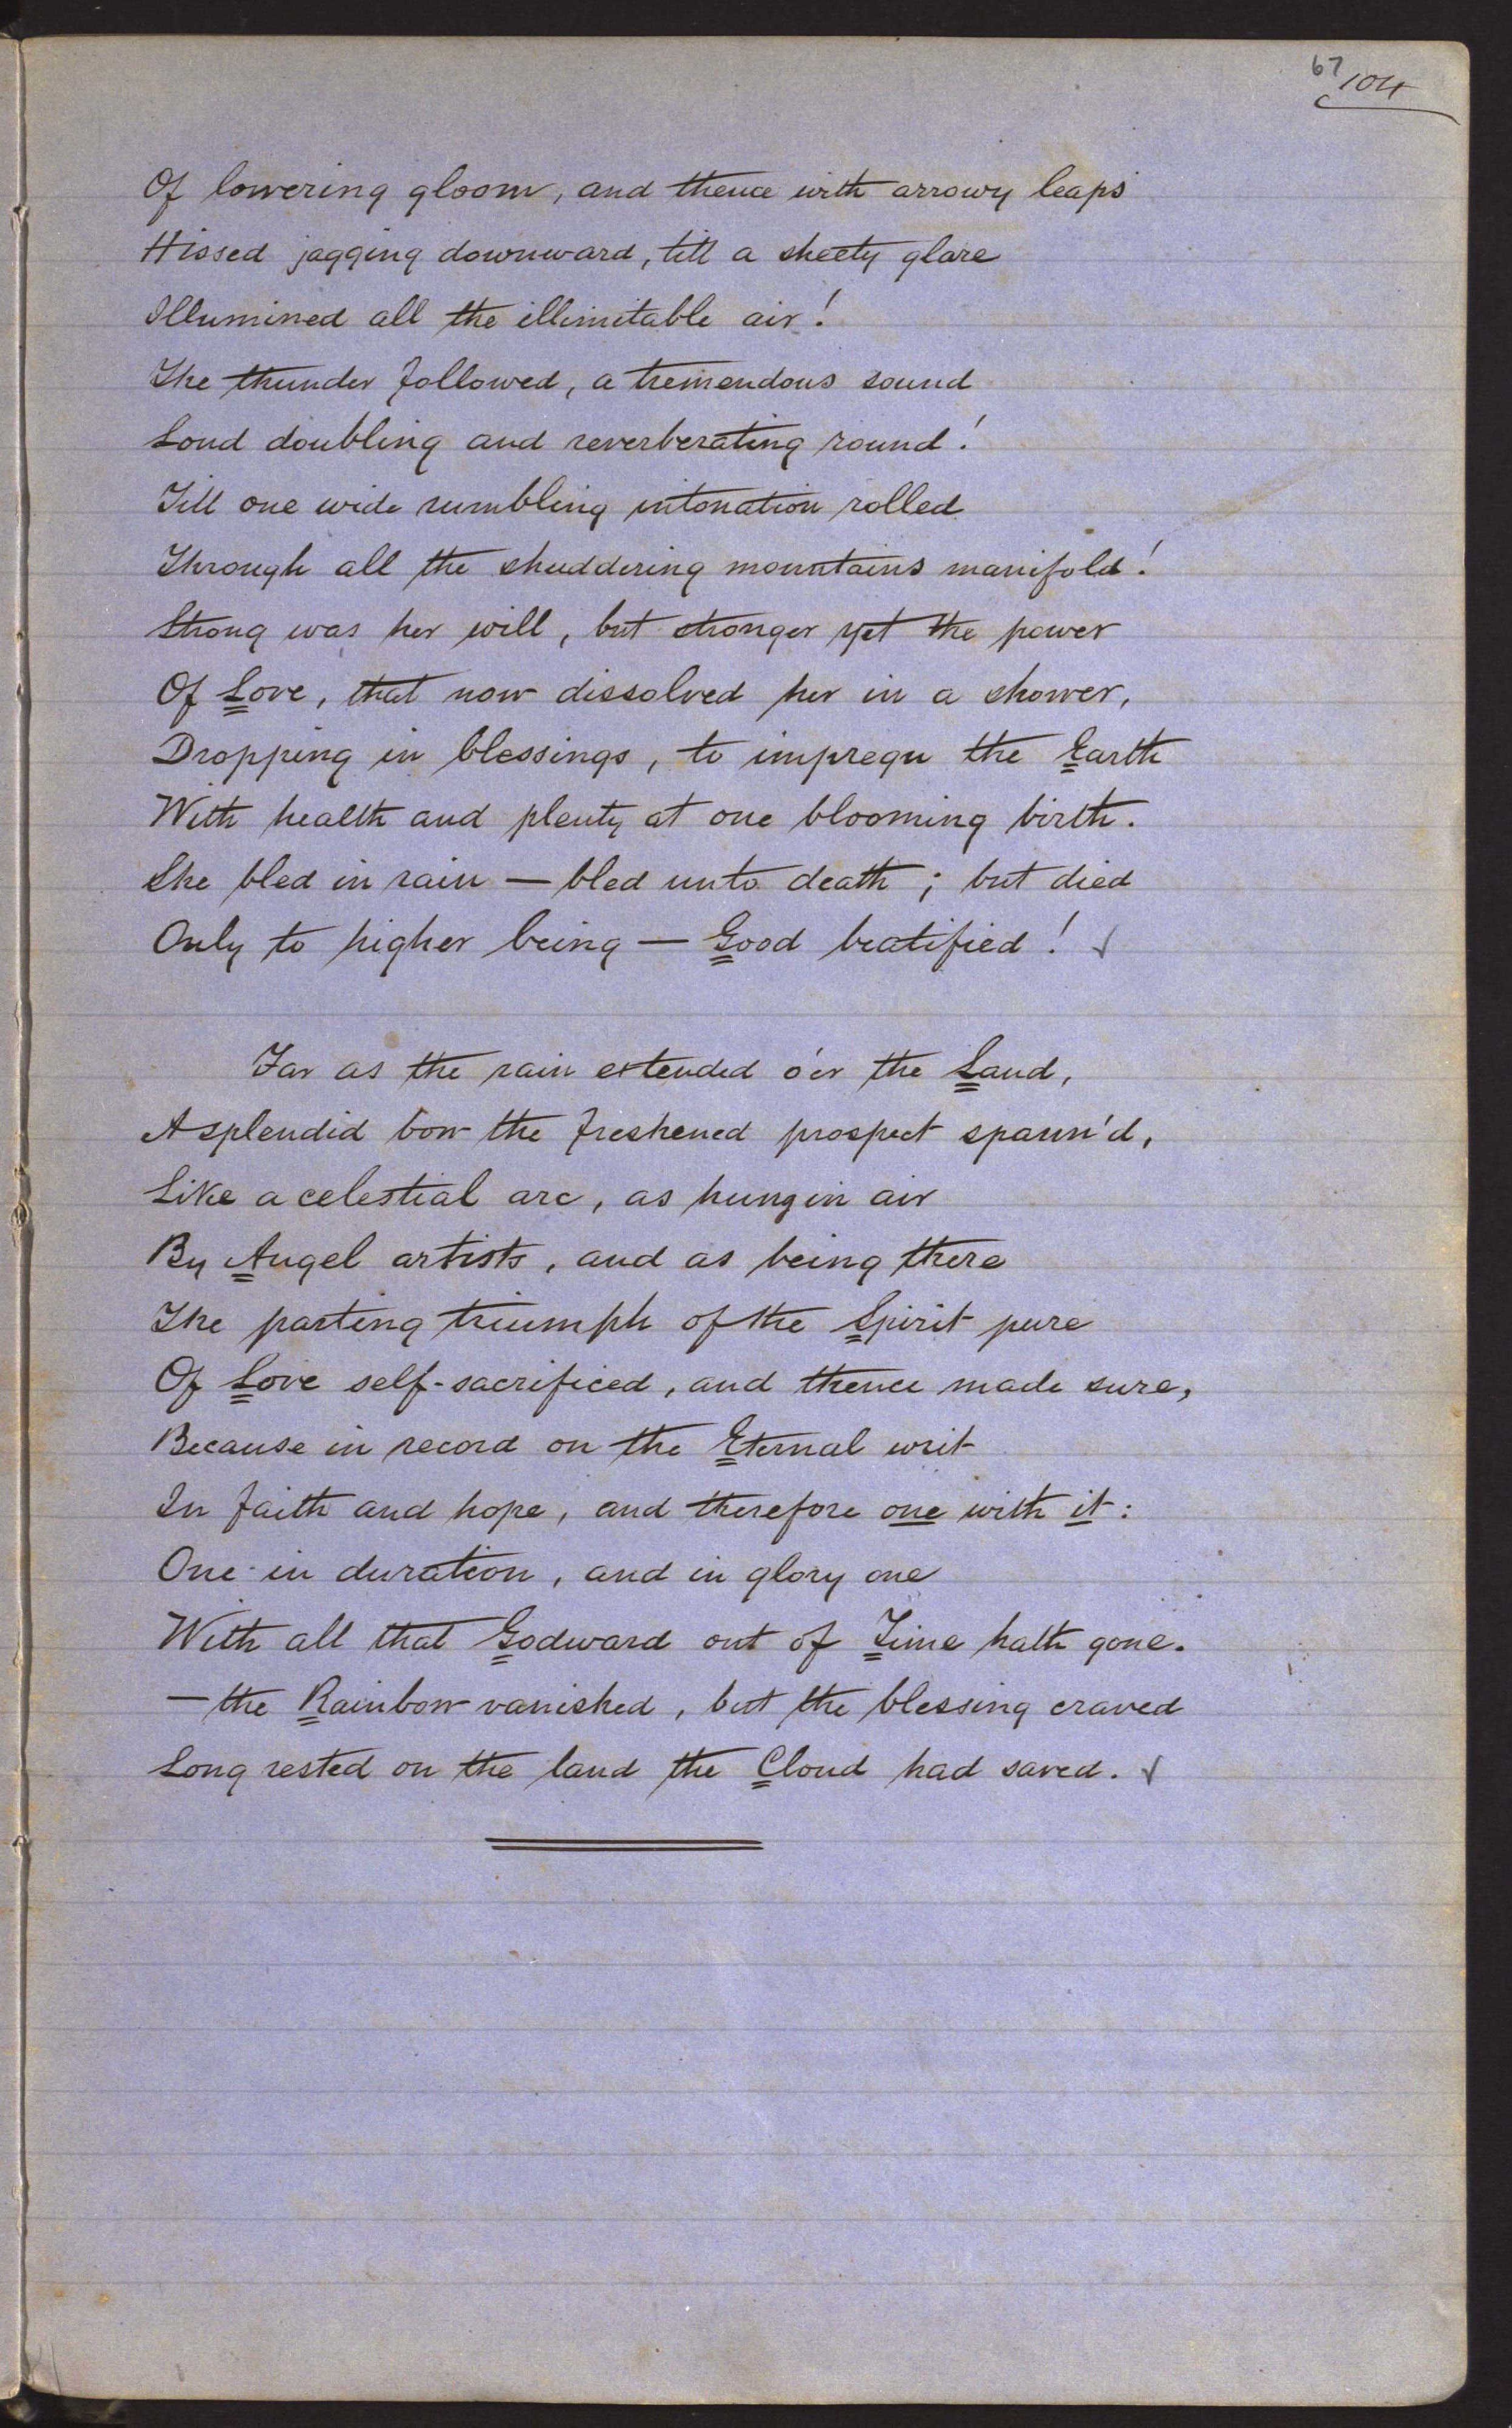 67
104
Of lowering gloom, and thence with arrowy leaps
Hissed jagging downward, till a sheety glare
Illumined all the illimitable air!
The thunder followed, a tremendous sound
Loud doubling and reverberating round!
Till one wide rumbling intonation rolled
Through all the shuddering mountains manifold!
Strong was her will, but stronger yet the power
Of Love, that now dissolved her in a shower,
Dropping in blessings, to impregn the Earth
With health and plenty at one blooming birth.
She bled in rain — bled unto death; but died
Only to higher being — Good beatified! ✓
Far as the rain extended o'er the Land,
A splendid bow the freshened prospect spann'd,
Like a celestial arc, as hung in air
By Angel artists, and as being there
The parting triumph of the Spirit pure
Of Love self-sacrificed, and thence made sure,
Because in record on the Eternal writ
In faith and hope, and therefore one with it:
One in duration, and in glory one
With all that Godward out of Time hath gone.
— the Rainbow vanished, but the blessing craved
Long rested on the land the Cloud had saved. ✓